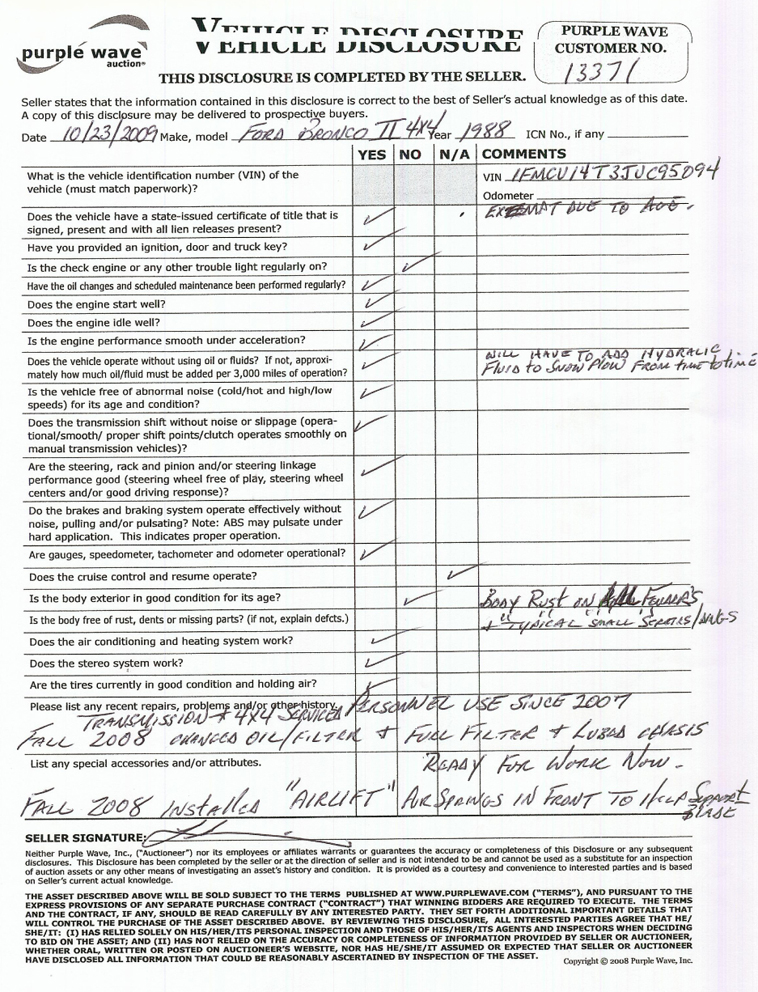 purple wave
auction®
VEHICLE DISCLOSURE
THIS DISCLOSURE IS COMPLETED BY THE SELLER.
PURPLE WAVE
CUSTOMER NO.
13371
Seller states that the information contained in this disclosure is correct to the best of Seller's actual knowledge as of this date.
A copy of this disclosure may be delivered to prospective buyers.
Date 10/23/2009 Make, model FORD BRONCO II 4X4 Year 1988 ICN No., if any
YES NO N/A COMMENTS
What is the vehicle identification number (VIN) of the
vehicle (must match paperwork)?
VIN 1FMCU14T3JUC95094
Odometer
EXEMPT DUE TO AGE.
Does the vehicle have a state-issued certificate of title that is
signed, present and with all lien releases present?
Have you provided an ignition, door and truck key?
Is the check engine or any other trouble light regularly on?
Have the oil changes and scheduled maintenance been performed regularly?
Does the engine start well?
Does the engine idle well?
Is the engine performance smooth under acceleration?
Does the vehicle operate without using oil or fluids? If not, approxi-
mately how much oil/fluid must be added per 3,000 miles of operation?
WILL HAVE TO ADD HYDRALIC
FLUID TO SNOW PLOW FROM TIME TO TIME
Is the vehicle free of abnormal noise (cold/hot and high/low
speeds) for its age and condition?
Does the transmission shift without noise or slippage (opera-
tional/smooth/ proper shift points/clutch operates smoothly on
manual transmission vehicles)?
Are the steering, rack and pinion and/or steering linkage
performance good (steering wheel free of play, steering wheel
centers and/or good driving response)?
Do the brakes and braking system operate effectively without
noise, pulling and/or pulsating? Note: ABS may pulsate under
hard application. This indicates proper operation.
Are gauges, speedometer, tachometer and odometer operational?
Does the cruise control and resume operate?
Is the body exterior in good condition for its age?
BODY RUST ON FENDER'S
Is the body free of rust, dents or missing parts? (if not, explain defcts.)
+ "TYPICAL SMALL SCRATES/DINGS
Does the air conditioning and heating system work?
Does the stereo system work?
Are the tires currently in good condition and holding air?
Please list any recent repairs, problems and/or other history. PERSONNEL USE SINCE 2007
TRANSMISSION + 4X4 SERVICED
FALL 2008 CHANGED OIL/FILTER + FUEL FILTER + LUBED CHASIS
List any special accessories and/or attributes. READY FOR WORK NOW.
FALL 2008 INSTALLED "AIRLIFT" AIR SPRINGS IN FRONT TO HELP SUPPORT
BLADE
SELLER SIGNATURE:
Neither Purple Wave, Inc., ("Auctioneer") nor its employees or affiliates warrants or guarantees the accuracy or completeness of this Disclosure or any subsequent
disclosures. This Disclosure has been completed by the seller or at the direction of seller and is not intended to and cannot be used as a substitute for an inspection
of auction assets or any other means of investigating an asset's history and condition. It is provided as a courtesy and convenience to interested parties and is based
on Seller's current actual knowledge.
THE ASSET DESCRIBED ABOVE WILL BE SOLD SUBJECT TO THE TERMS PUBLISHED AT WWW.PURPLEWAVE.COM ("TERMS"), AND PURSUANT TO THE
EXPRESS PROVISIONS OF ANY SEPARATE PURCHASE CONTRACT ("CONTRACT") THAT WINNING BIDDERS ARE REQUIRED TO EXECUTE. THE TERMS
AND THE CONTRACT, IF ANY, SHOULD BE READ CAREFULLY BY ANY INTERESTED PARTY. THEY SET FORTH ADDITIONAL IMPORTANT DETAILS THAT
WILL CONTROL THE PURCHASE OF THE ASSET DESCRIBED ABOVE. BY REVIEWING THIS DISCLOSURE, ALL INTERESTED PARTIES AGREE THAT HE/
SHE/IT: (I) HAS RELIED SOLELY ON HIS/HER/ITS PERSONAL INSPECTION AND THOSE OF HIS/HER/ITS AGENTS AND INSPECTORS WHEN DECIDING
TO BID ON THE ASSET; AND (II) HAS NOT RELIED ON THE ACCURACY OR COMPLETENESS OF INFORMATION PROVIDED BY SELLER OR AUCTIONEER,
WHETHER ORAL, WRITTEN OR POSTED ON AUCTIONEER'S WEBSITE, NOR HAS HE/SHE/IT ASSUMED OR EXPECTED THAT SELLER OR AUCTIONEER
HAVE DISCLOSED ALL INFORMATION THAT COULD BE REASONABLY ASCERTAINED BY INSPECTION OF THE ASSET.
Copyright © 2008 Purple Wave, Inc.